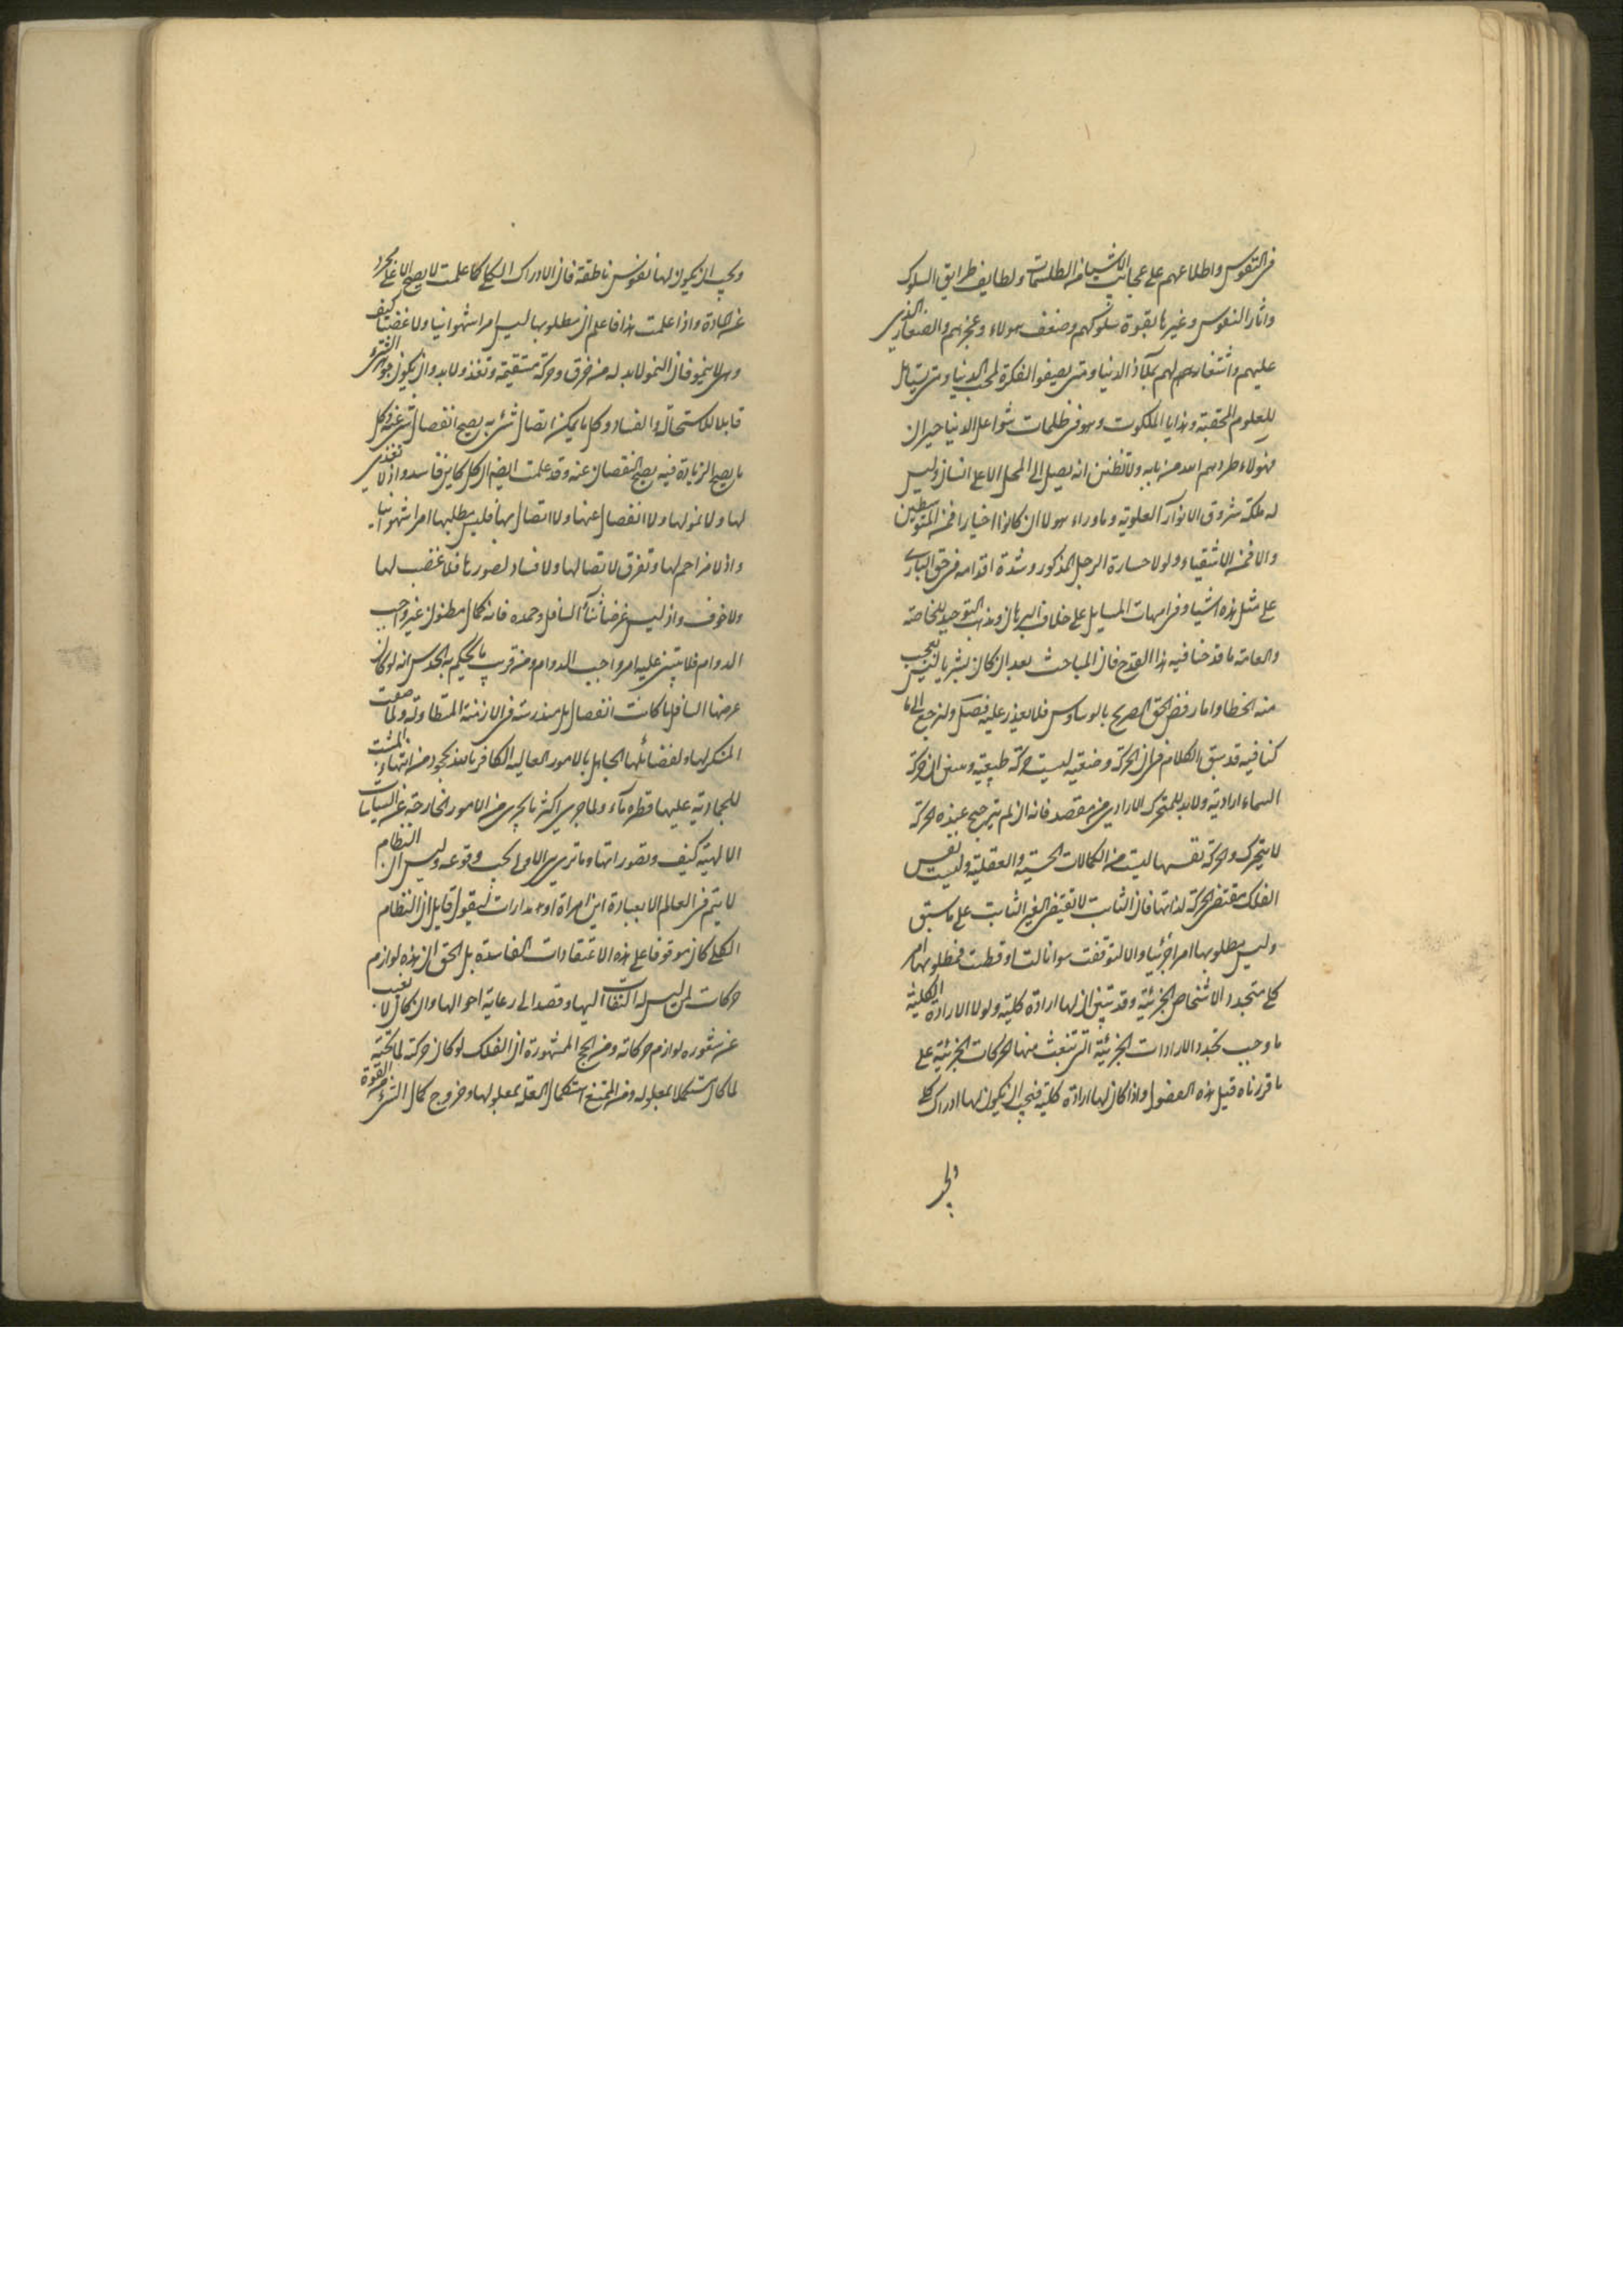 فى النفوس واطلاعهم على عجائب الاشياء من الطلسمات ولطايف طرايق السلوك
واثار النفوس وغيرها بقوة سلوكهم وضعف هولاء وعجزهم والصغار الذى
عليهم واشتغار لهم بملاذ الدنيا ومتى يصفوا الفكرة لمحب الدنيا ومتى يتأمل
للعلوم الحقيقة وخبايا الملكوت وهو فى ظلمات شواغل الدنيا حيران
فهولاء طردهم الله من بابه ولا تظنن انه يصل الى المحل الاعلى انسان وليس
له ملكة شروق الانوار العلوية وماوراء هولا ان كانوا اخيارا فمن المتوسطين
والا فمن الاشقياء ولولا جسارة الرجل المذكور وشدة اقدامه فى حق البارى
على مثل هذه اشيا وفى امهات المسايل على خلاف البرهان ومذاهب التوحيد للخاصة
والعامة ما قدحنا فيه هذا القدح فان المباحث بعد ان كان بشريا ليس يعجب
منه الخطا واما رفض الحق الصريح بالوساوس فلا يعذر عليه فصل ولنرجع الى ما
كنا فيه قد سبق الكلام فى ان الحركة وضعية ليست حركة طبيعية وبين ان حركة
السماء ارادية ولا بد للمتحرك الارادى من مقصد فانه ان لم يترجح عنده الحركة
لا يتحرك والحركة نفسها ليست من الكمالات الحسية والعقلية وليست نفس
الفلك مقتضى الحركة لذاتها فان الثابت لا تقتضى الغير الثابت على ما سبق
وليس مطلوبها امرا جزئيا والا لتوقفت سوا نالت او قنطت فمطلوبها امر
كلى متجدد الاشخاص الجزئية وقد تبين ان لها ارادة كلية ولولا الارادة الكلية
ما وجب تجدد الارادات الجزئية التى تنبعث منها الحركات الجزئية على
ما قررناه قبيل هذه الفصول واذا كان لها ارادة كلية فيجب ان يكون لها ادراك كلى
ويجب
ويجب ان يكون لها نفوس ناطقة فان الادراك الكلى كما علمت لا يصح الا على مجرد
عن المادة واذا علمت هذا فاعلم ان مطلوبها ليس امرا شهوانيا ولا غضبيا كيف
وهى لا ينمو فان النمو لا بد له من خرق وحركة مستقيمة وتغذ ولا بد وان يكون جواهر الشىء
قابلا للاستحالة والفساد وكل ما يمكن اتصال شئ به يصح انفصال شئ عنه وكل
ما يصح الزيادة فيه يصح النقصان عنه وقد علمت ايضا ان كل كاين فاسد واذ لا تغذى
لها ولا نمو لها ولا انفصال عنها ولا اتصال بها فليس مطلبها امرا شهوانيا
واذ لا مزاحم لها وتفرق لاتصالها ولا فساد لصورها فلا غضب لها
ولا خوف واذ ليس غرضها ثناء السافل وحمده فانه كمال مظنون غير واجب
الدوام فلا يبتنى عليه امر واجب الدوام ومن قريب ما يحكم به الحدس انه لو كان
غرضها السافل ما كانت انفصال بل مندرسة فى الازمنة المتطاولة ولما صعب
المنكر لها ولفضائلها الجاهل بالامور العالية الكافر بالله نجو من انتهاء المشيت
للمجازية عليها قطرة ماء ولما جرى اكثر ما يجرى من الامور الخارجة عن السياسات
الالهية كيف وتصوراتها وما ترى الاولى يجب وقوعه وليس ان النظام
لا يتم فى العالم الا بعبادة اين امراة او مدارات ليقول قايل ان النظام
الكلى كان موقوفا على هذه الاعتقادات الفاسدة بل الحق ان هذه لوازم
حركات لمن ليس له التفات اليها وقصد الى رعاية احوالها وان كان لا يغيب
عن شعوره لوازم حركاته ومن الحجج المشهورة ان الفلك لو كان حركته لما تحته
لما كان مستكملا بمعلوله ومن الممتنع استكمال العلة بمعلولها وخروج كمال الشئ من القوة